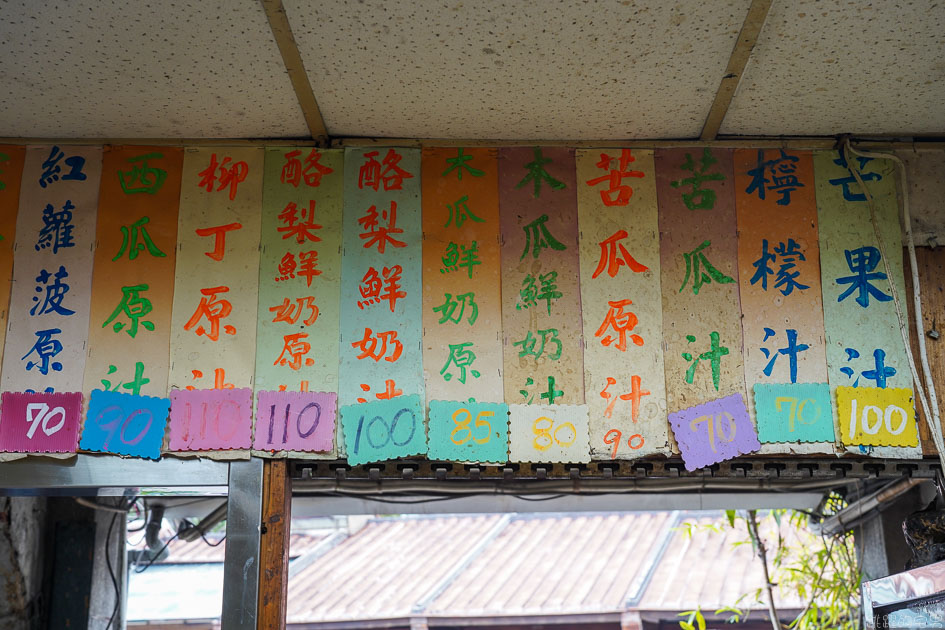 芒果汁
100
檸檬汁
70
苦瓜汁
70
苦瓜原汁
90
木瓜鮮奶汁
80
木瓜鮮奶原
85
酪梨鮮奶汁
100
酪梨鮮奶原
110
柳丁原汁
110
西瓜原汁
90
紅蘿菠原
70